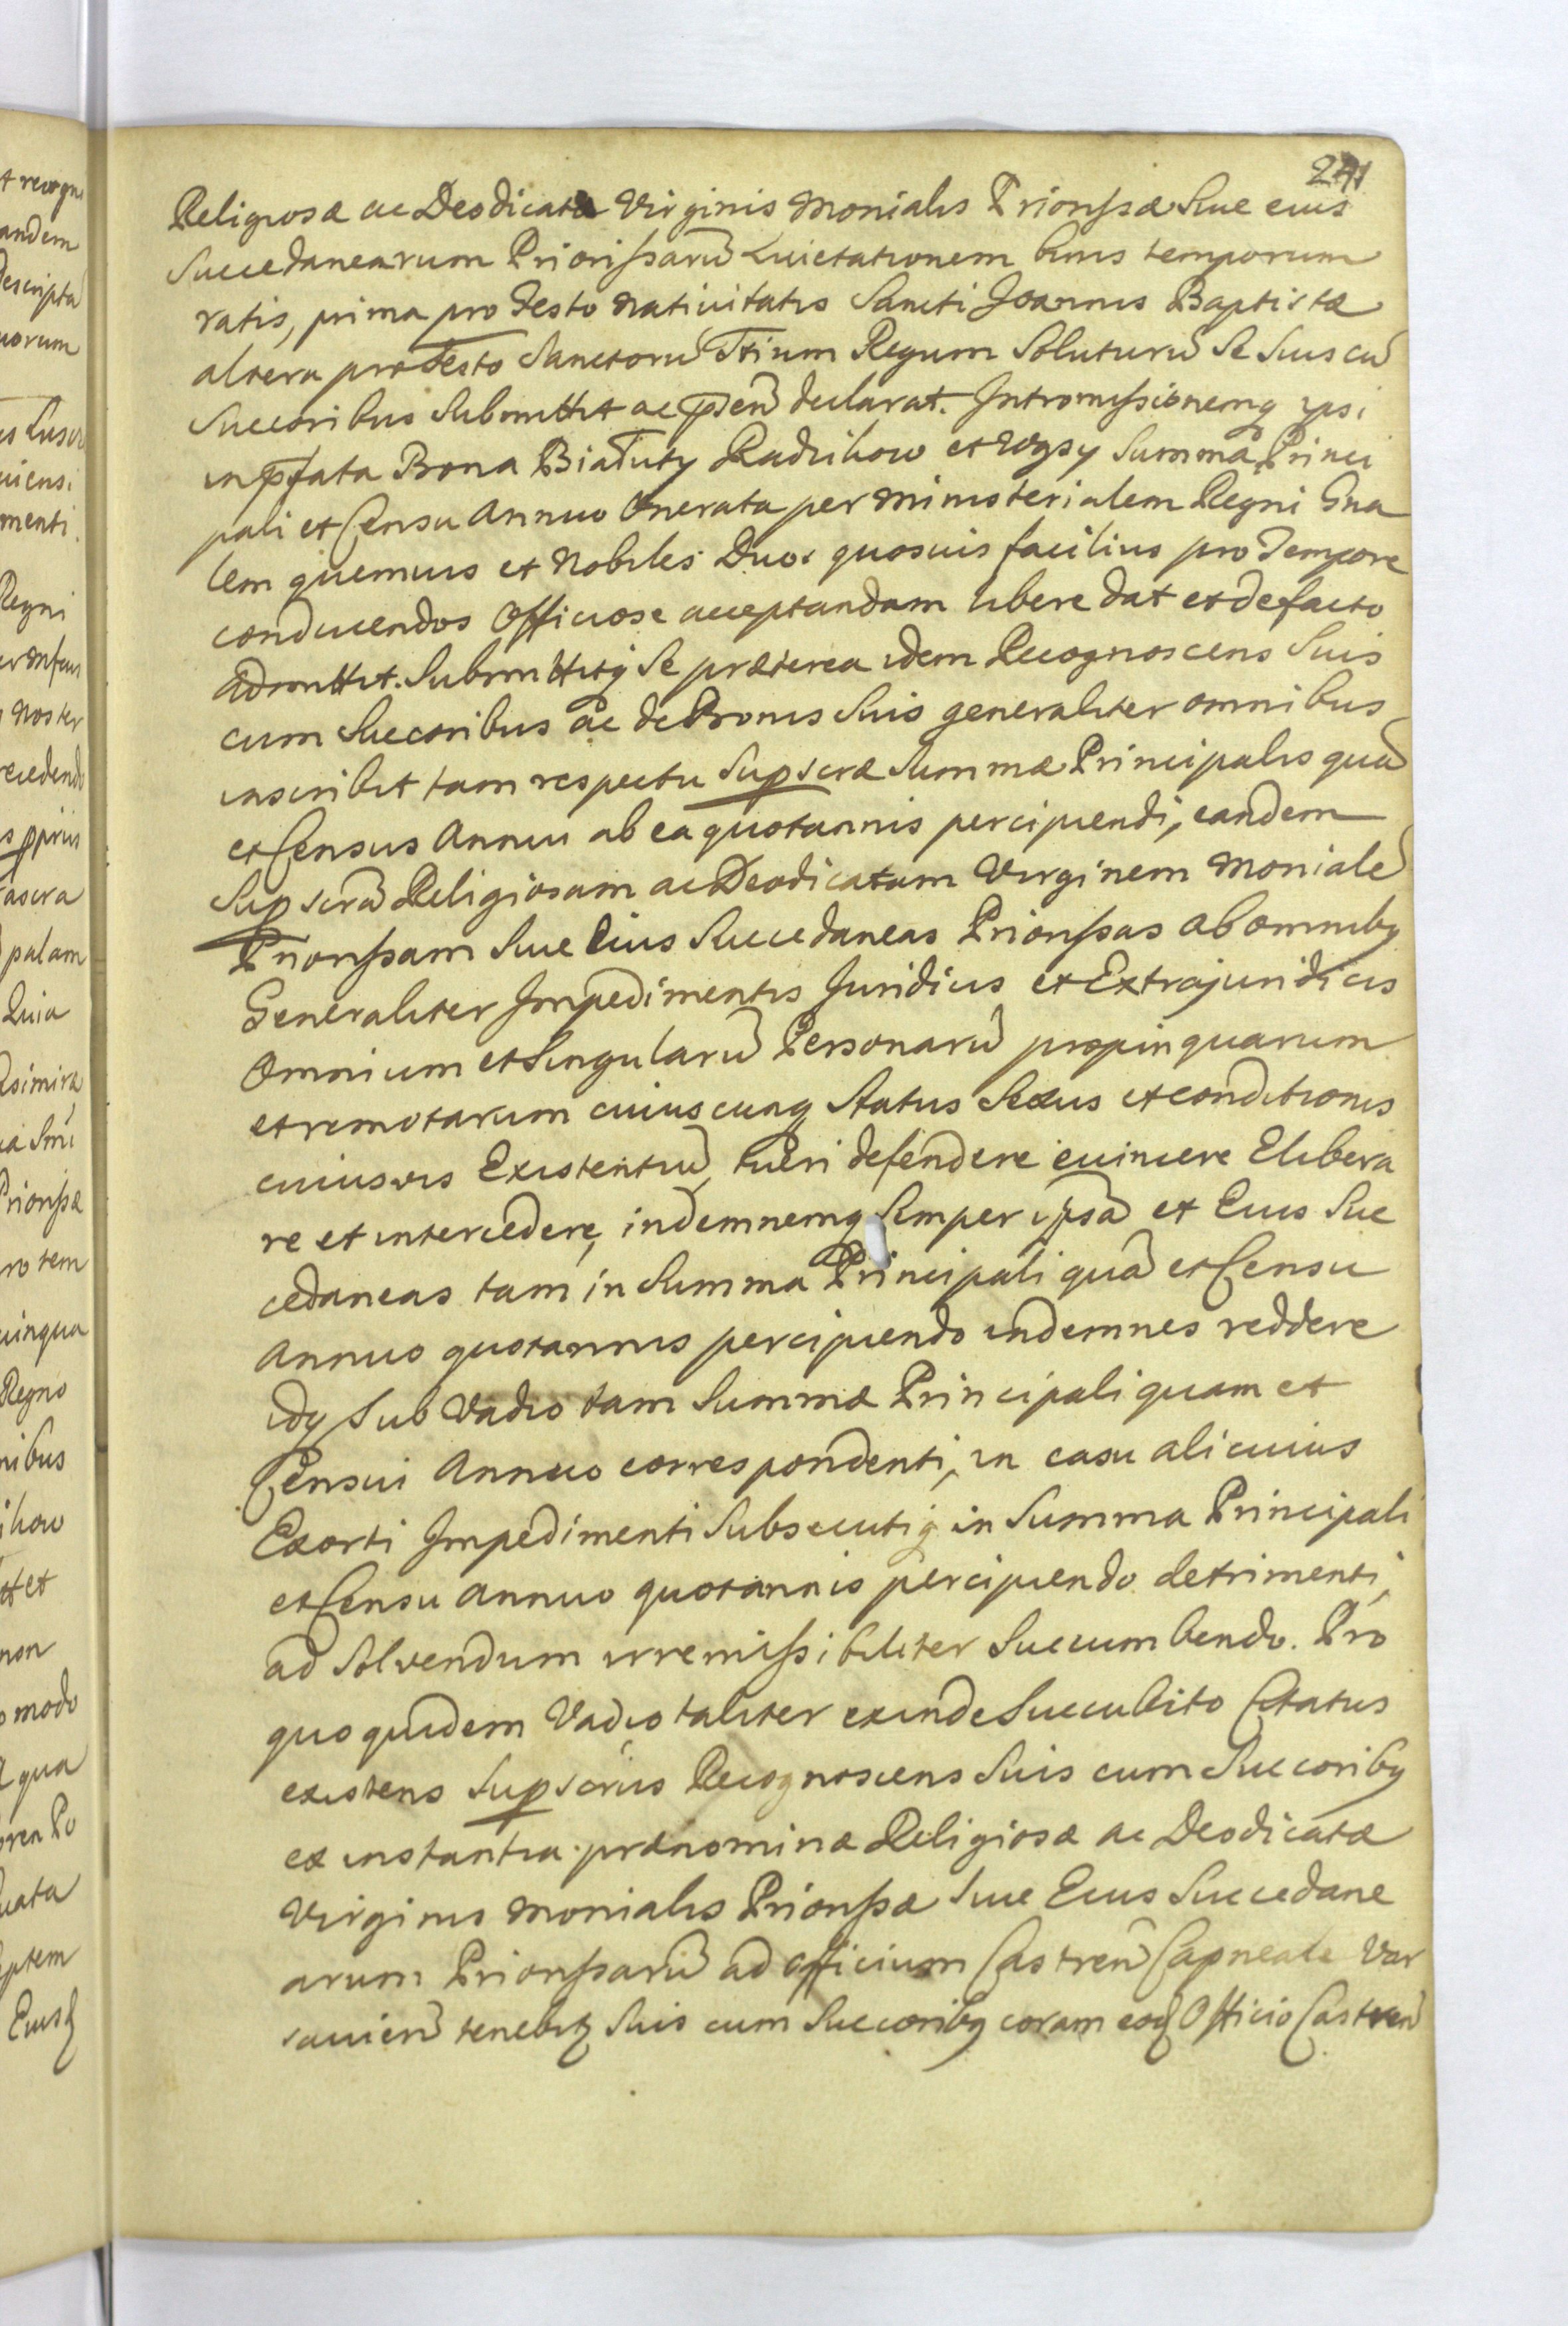 241
Religiosæ ac Deodicatæ Virginis Monialis Priorissæ Siue eius
Succedanearum Priorissarũ Quietationem binis temporum
ratis, prima pro Festo Natiuitatis Sancti Joannis Baptistæ
altera pro Festo Sanctorũ Trium Regum Soluturũ Se Suis cũ
Succoribus Submittit ac p̃sen̄ declarat. Intromissionemq ipsi
in p̃fata Bona Biaɫuty Radzikow et Wysy Summa Princi
pali et Censu Annuo Onerata per Ministerialem Regni Gna
lem quemuis et Nobiles Duos quosuis facilius pro Tempore
conducendos Officiose acceptandam libere dat et de facto
admittit. Submittitq Se præterea idem Recognoscens Suis
cum Succoribus ac de Bonis Suis generaliter omnibus
inscribit tam respectu Supscræ Summæ Principalis quã
et Census Annui ab ea quotannis percipiendi, eandem
Supscrã Religiosam ac Deodicatam Virginem Monialẽ
Priorissam Siue Eius Succedaneas Priorissas ab omnibq
Generaliter Impedimentis Juridicis et Extrajuridicis
Omnium et Singularũ Personarũ propinquarum
et remotarum cuiuscunq Status Sexus et conditionis
cuiusvis Existentiũ, tueri defendere euincere Elibera
re et intercedere, indemnemq Semper ipsã et Eius Suc
cedaneas tam in Summa Principali quã et Censu
Annuo quotannis percipiendo indemnes reddere
idq Sub Vadio tam Summæ Principali quam et
Censui Annuo correspondenti, in casu alicuius
Exorti Impedimenti Subsecutiq in Summa Principali
et Censu Annuo quotannis percipiendo detrimenti,
ad Solvendum irremissibiliter Succumbendo. Pro
quo quidem Vadio taliter exinde Succubito Citatus
existens Supscrius Recognoscens Suis cum Succoribq
ex instantia prænominæ Religiosæ ac Deodicatæ
Virginis Monialis Priorissæ Siue Eius Succedane
arum Priorissarũ ad Officium Castren̄ Capneale Var
sauien̄ tenebit Suis cum Succoribq coram eod Officio Castren̄